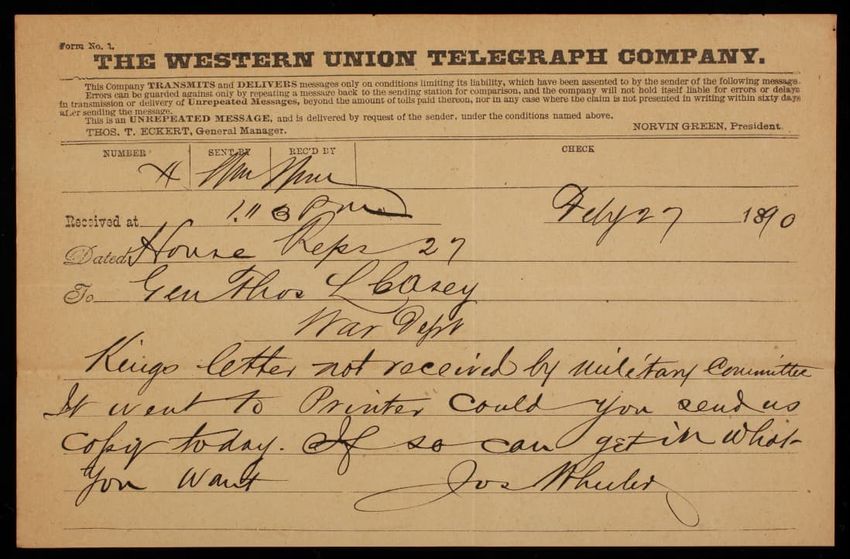 Form No. 1.
THE WESTERN UNION TELEGRAPH COMPANY.
This Company TRANSMITS and DELIVERS messages only on conditions limiting its liability, which have been assented to by the sender of the following message.
Errors can be guarded against only by repeating a message back to the sending station for comparison, and the company will not hold itself liable for errors or delays
in transmission or delivery of Unrepeated Messages, beyond the amount of tolls paid thereon, nor in any case where the claim is not presented in writing within sixty days
after sending the message.
This is an UNREPEATED MESSAGE, and is delivered by request of the sender, under the conditions named above.
THOS. T. ECKERT, General Manager. NORVIN GREEN, President.
NUMBER SENT BY REC'D BY CHECK
Received at 1.13 Pm Feby 27 1890
Dated House Reps 27
To Gen Thos L Casey
War Dept
Kings letter not received by Military Committee
It went to Printer Could you send us
Copy today. If so can get in what
You want Jos Wheeler